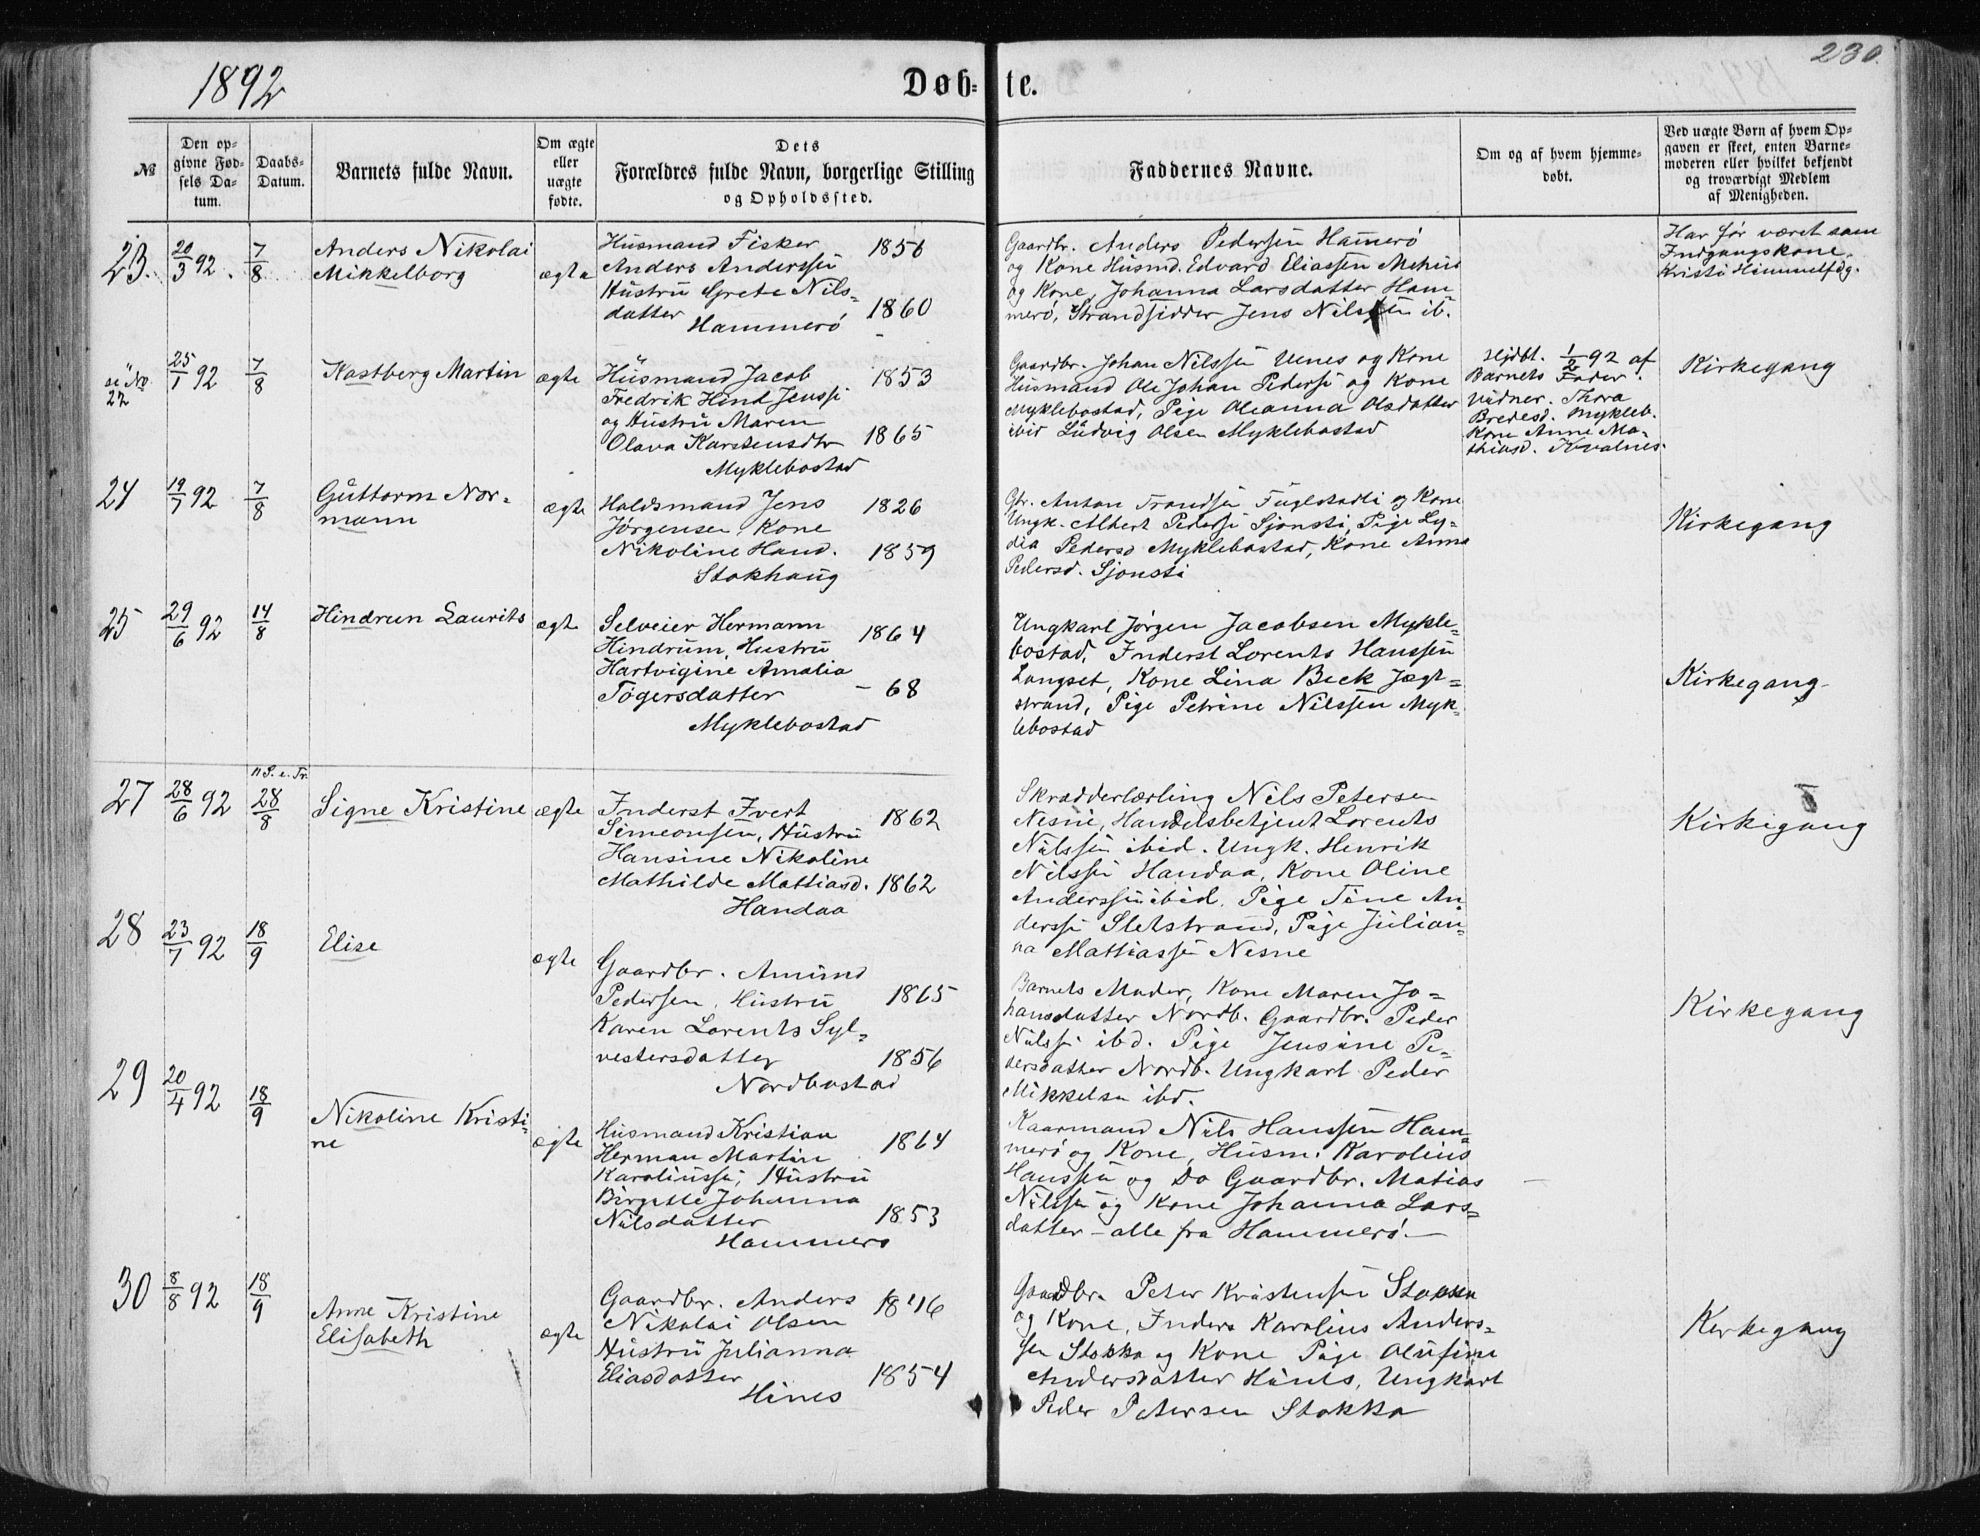 230.
1892
Døb-te.
№
Den op-
givne Fød-
sels Da-
tum.
Daabs-
Datum.
Barnets fulde Navn.
Om ægte
eller
uægte
fødte.
Dets
Forældres fulde Navn, borgerlige Stilling
og Opholdssted.
Faddernes Navne.
Om og af hvem hjemme-
døbt.
Ved uægte Børn af hvem Op-
gaven er skeet, enten Barne-
moderen eller hvilket bekjendt
og troværdigt Medlem
af Menigheden.
23. 20/3 92. 7/8
Anders Nikolai
Mikkelborg
ægte
Husmand Fisker 1856
Anders Anderssen
Hustru Grete Nils-
datter 1860
Hammerö
Gaardbr. Anders Pedersen Hamerö
og Kone Husmd. Edvard Eliassen
og Kone, Johanna Larsdatter Ham-
merö, Strandsidder Jens Nilssen ib.
Har før været som
Indgangskone
Kristi Himmelfdg.
se No.
22
25/1 92 7/8
Kastberg Martin
ægte
Husmand Jacob 1853
Fredrik Hind Jenssen
og Hustru Maren
Olava Karstensdtr 1865
Myklebostad
Gaardbr. Johan Nilssen Uenes og Kone
Husmand Ole Johan Pedersen og Kone
Myklebostad, Pige Oleanna Olsdatter
ibid Ludvig Olsen Myklebostad
Hjdbt. 1/2 92 af
Barnets Fader.
Vidner. Thora
Bredesd. Mykleb.
Kone Anne Ma-
thiasd. Kvalnes.
Kirkegang
24 19/7 92 7/8
Guttorm Nor-
mann
ægte
Holdsmand Jens 1826
Jörgensen Kone
Nikoline Hansd. 1859
Stokhaug
Anton Trondsen Fuglstadli og Kone
Ungk. Albert Pedersen Sjonsti, Pige Ly-
dia Pedersd Myklebostad, Kone Anna
Pedersd. Sjonsti
Kirkegang
25 29/6 92 14/8
Hindrum Laurits
ægte
Selveier Hermann 1864
Hindrum, Hustru
Hartvigine Amalia
Tögersdatter - 68
Myklebostad
Ungkarl Jörgen Jacobsen Mykle-
bostad, Inderst Lorents Hanssen
Langset, Kone Lina Beck Jægt-
strand, Pige Petrine Nilssen Myk-
lebostad
Kirkegang
27 28/6 92 11 S. e. Tr. 28/8
Signe Kristine
ægte
Inderst Evert 1862
Simeonsen, Hustru
Hansine Nikoline
Mathilde Mattiasd. 1862
Handaa
Skrædderlærling Nils Petersen
Nesne, Handelsbetjent Lorents
Nilssen ibid. Ungk. Henrik
Nilssen Handaa, Kone Oline
Anderssen ibid. Pige Tine An-
derssen Sletstrand, Pige Julian-
na Mattiassen Nesne
Kirkigang
28 23/7 92 18/9
Elise
ægte
Gaardbr. Amund
Pedersen, Hustru 1865
Karen Lorents Syl-
vestersdatter 1856
Nordbostad
Barnets Moder, Kone Maren Jo-
hansdatter Nordb. Gaardbr. Peder
Nilssen ibd. Pige Jensine Pe-
dersdatter Nordb. Ungkarl Peder
Mikkelsen ibd.
Kirkegang
29 20/4 92 18/9
Nikoline Kristi-
ne
ægte
Husmand Kristian 1864
Herman Martin
Karoliussen, Hustru
Birgitte Johanna
Nilsdatter 1853
Hammerö
Kaarmand Nils Hanssen Ham-
merö og Kone, Husm. Karolius
Hanssen og Do Gaardbr. Matias
Nilssen og Kone Johanna Lars-
datter - alle fra Hammerö. -
30 8/8 92 18/9
Anne Kristine
Elisabeth
ægte
Gaardbr. Anders 1846
Nikolai Olsen
Hustru Julianna
Eliasdatter 1854
Hines
Gaardbr. Peter Kristensen
og Kone, Inders Karolius Anders-
sen Stokka og Kone Pige Olufine
Andersdatter Hines, Ungkarl
Peder Petersen Stokka
Kirkegang